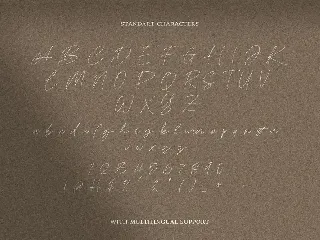 STANDART CHARACTERS
A B C D E F G H I J K
L M N O P Q R S T U V
W X Y Z
a b c d e f g h i j k l m n o p q r s t u
v w x y z
1 2 3 4 5 6 7 8 9 0
WITH MULTILINGUAL SUPPORT